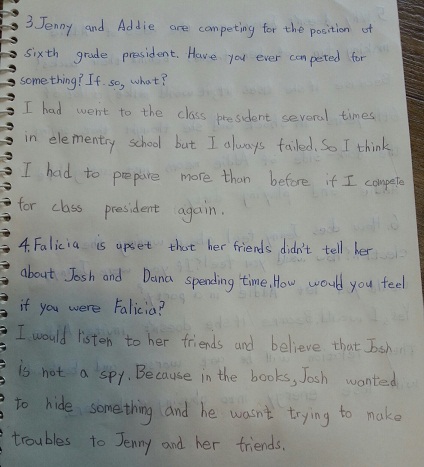 3. Jenny and Addie are competing for the position of
sixth grade president. Have you ever competed for
something? If so, what?
I had went to the class president several times
in elementry school but I always failed. So I think
I had to prepare more than before if I compete
for class president again.
4. Falicia is upset that her friends didn't tell her
about Josh and Dana spending time. How would you feel
if you were Falicia?
I would listen to her friends and believe that Josh
is not a spy. Because in the books, Josh wanted
to hide something and he wasn't trying to make
troubles to Jenny and her friends.